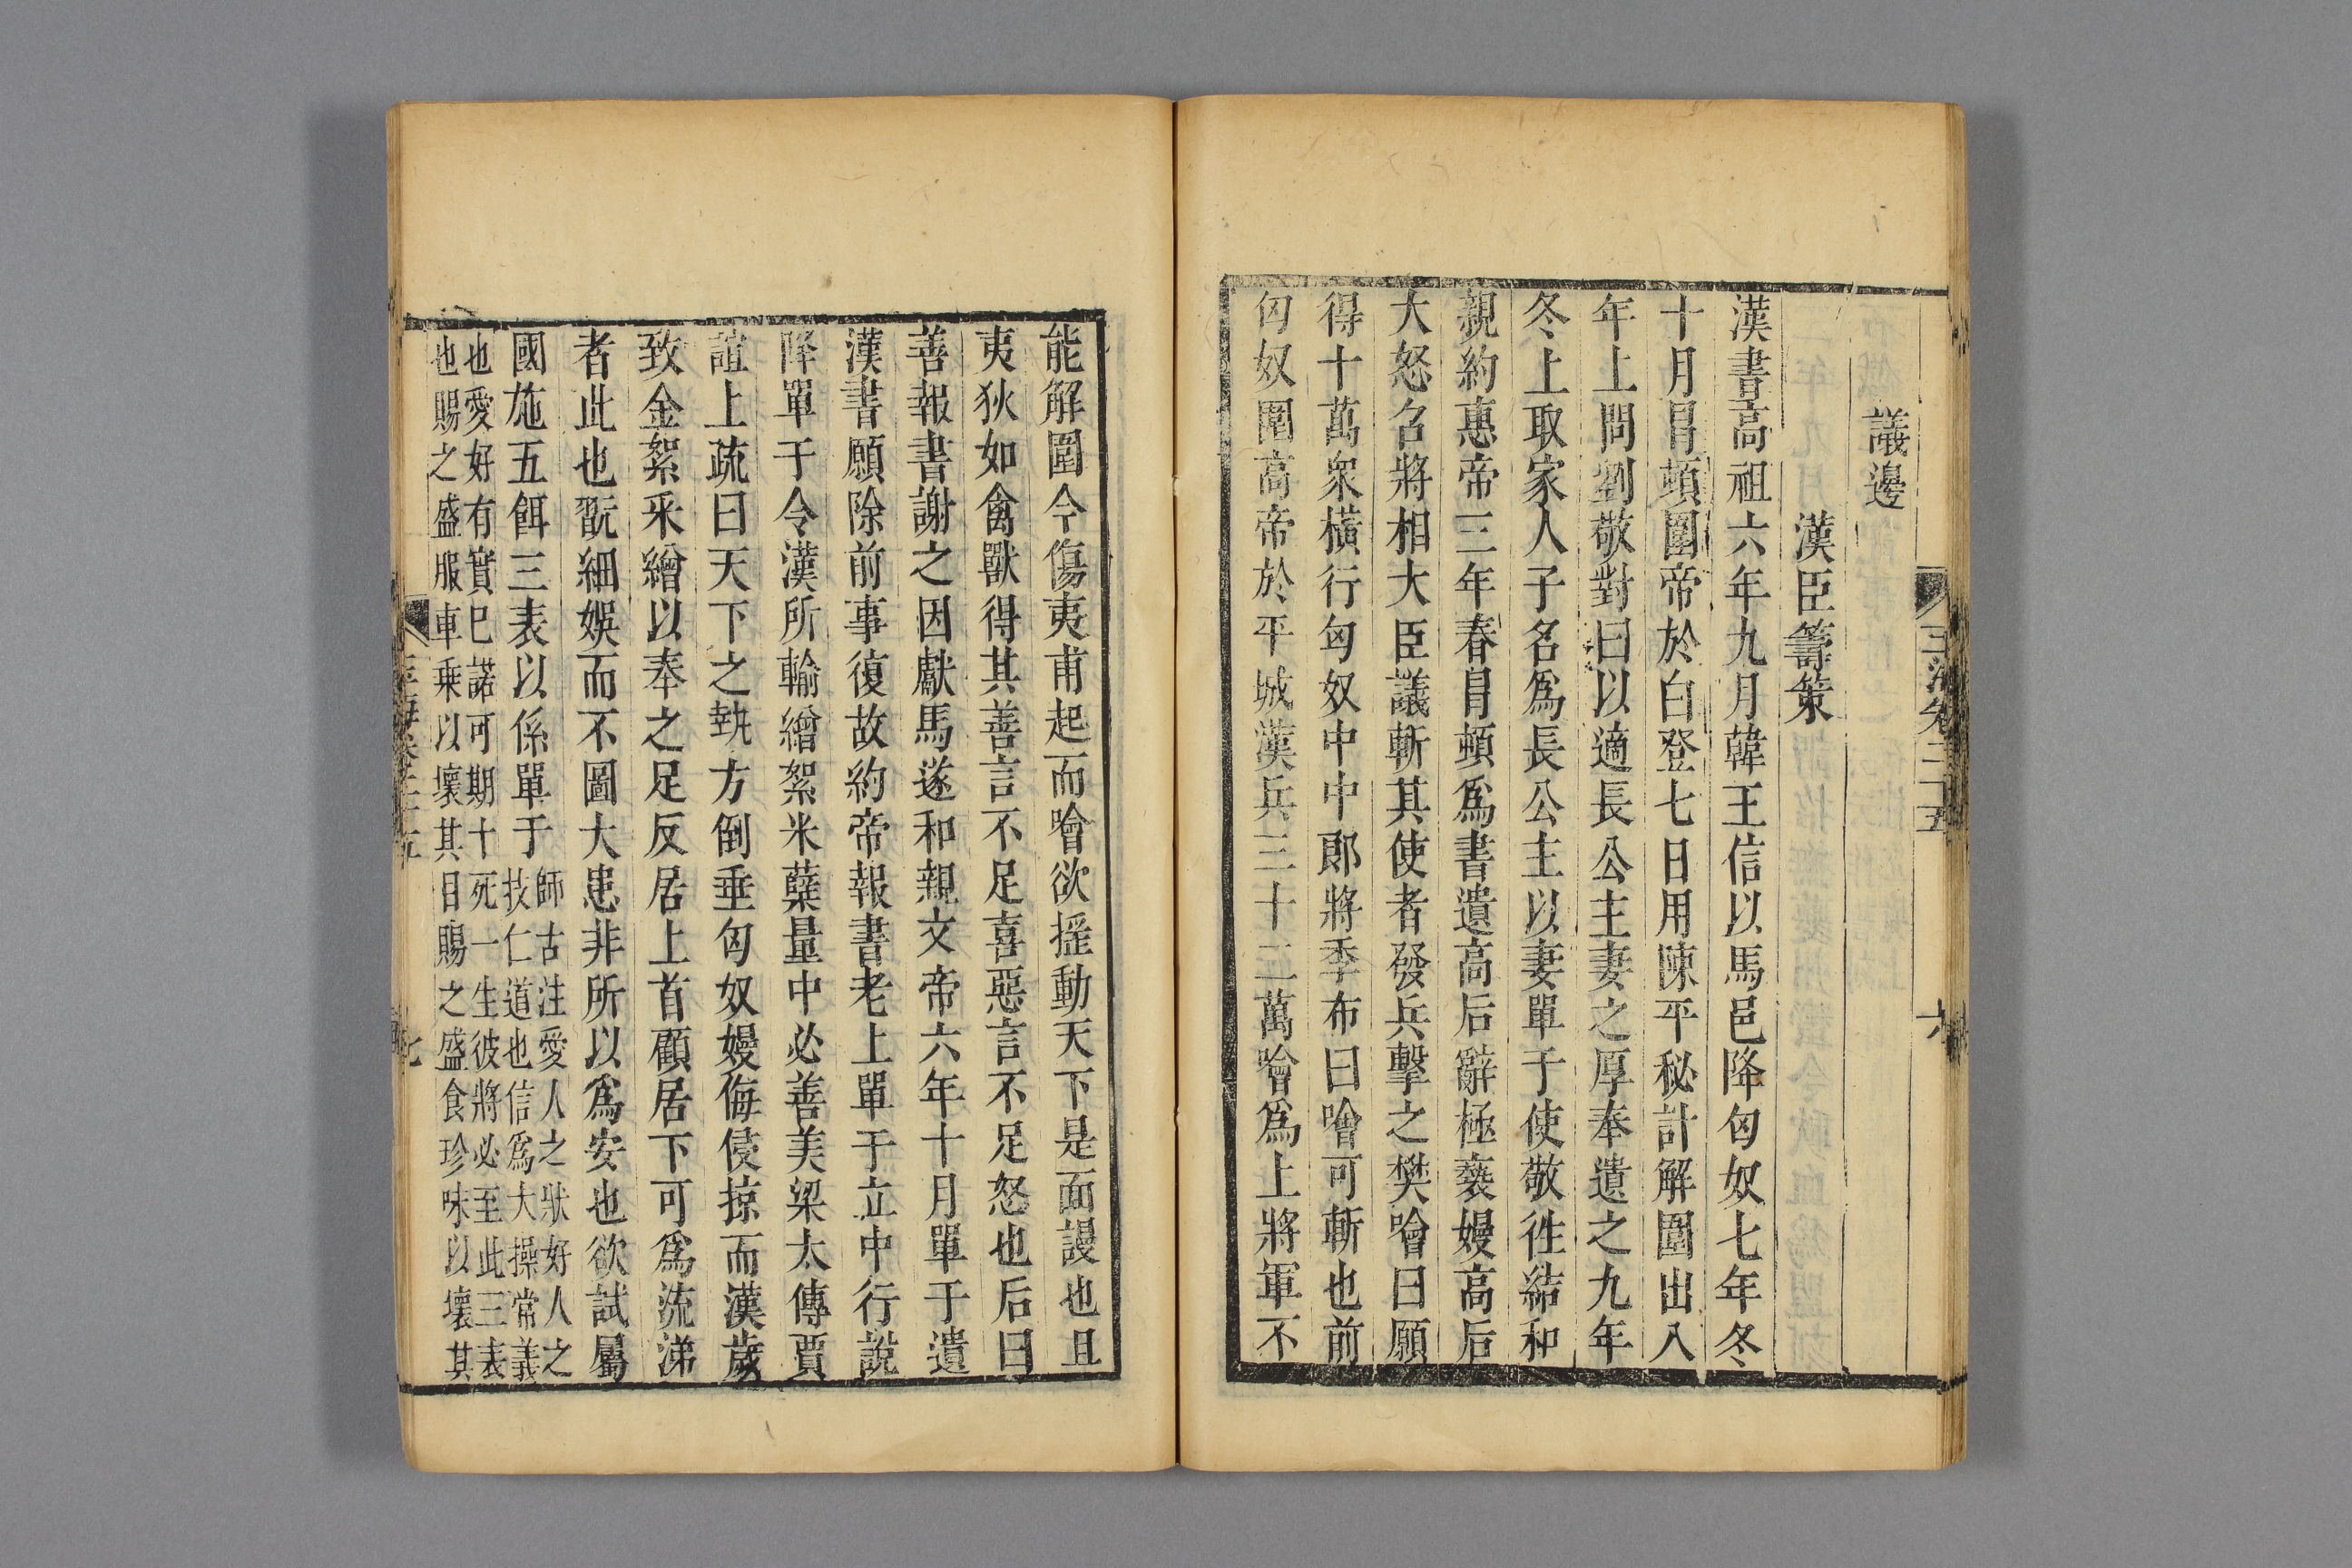 議邊
漢臣籌策
漢書高祖六年九月韓王信以馬邑降匈奴七年冬
十月冒頓圍帝於白登七日用陳平秘計解圍出八
年上問劉敬對曰以適長公主妻之厚奉遺之九年
冬上取家人子名爲長公主以妻單于使敬徃結和
親約惠帝三年春冒頓爲書遺高后辭極褻嫚高后
大怒召將相大臣議斬其使者發兵擊之樊噲曰願
得十萬衆橫行匈奴中中郎將季布曰噲可斬也前
匈奴圍高帝於平城漢兵三十二萬噲爲上將軍不
能解圍今傷夷甫起而噲欲揺動天下是面謾也且
夷狄如禽獸得其善言不足喜惡言不足怒也后曰
善報書謝之因獻馬遂和親文帝六年十月單于遺
漢書願除前事復故約帝報書老上單于立中行說
降單于令漢所輸繒絮米糱量中必善美梁太傅賈
誼上疏曰天下之埶方倒垂匈奴嫚侮侵掠而漢歲
致金絮采繒以奉之足反居上首顧居下可爲流涕
者此也翫細娛而不圖大患非所以爲安也欲試屬
國施五餌三表以係單于師古注愛人之狀好人之
技仁道也信爲大操常義
也愛好有實已諾可期十死一生彼將必至此三表
也賜之盛服車乗以壞其目賜之盛食珍味以壞其
玉海卷三十五
六
七